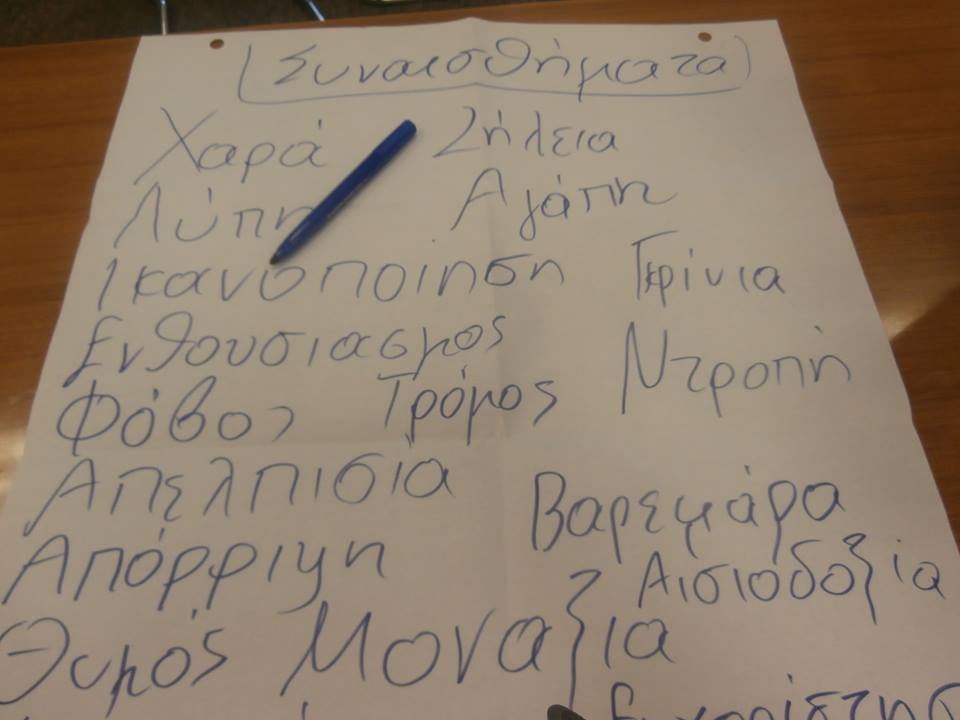 Συναισθήματα
Χαρά Ζήλεια
Λύπη Αγάπη
Ικανοποίηση Γκρίνια
Ενθουσιασμός
Φόβος Τρόμος Ντροπή
Απελπισία
Βαρεμάρα
Απόρριψη Αισιοδοξία
Θυμός Μοναξια